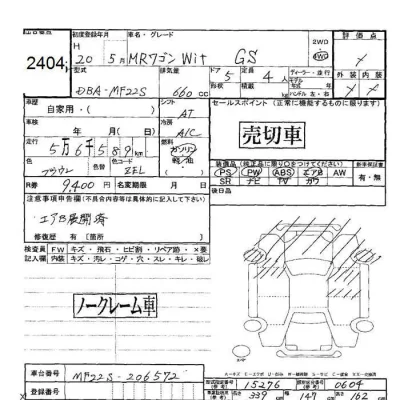 2404
初度登録年月
車名・グレード
評価点
H 20 5月 MRワゴン Wit GS
2WD
4WD
型式
排気量
ドア
定員
ディーラー・並行
外装
内装
DBA-MF22S
660 cc
5
4名
車歴
シフト
形状
積載
ハンドル
自家用・( )
AT
セールスポイント (正常に機能するものに限ります)
車検
年 月
冷房
A/C
売切車
走行
5万6千589km
燃料
ガソリン
軽・油
色
色コード
ZEL
装備品 (検正品に限り○をつけてください)
新車保証書
PS PW ABS エアB AW
SR ナビ TV カワ
有・無
R券
9,400円
名変期限
月 日
注意事項申告欄 (不具合内容等は具体的に記入して下さい)
エアB展開済
修復歴 有 [箇所
検査員
記入欄
FW キズ・飛石・ヒビ割・リペア跡・×要
内装 キズ・汚レ・コゲ・穴・スレ・キレ・破レ
ノークレーム車
車台番号
MF22S-206572
登録番号
型式指定番号
15276
類別区分番号
0604
長さ
339
幅
147
高さ
162